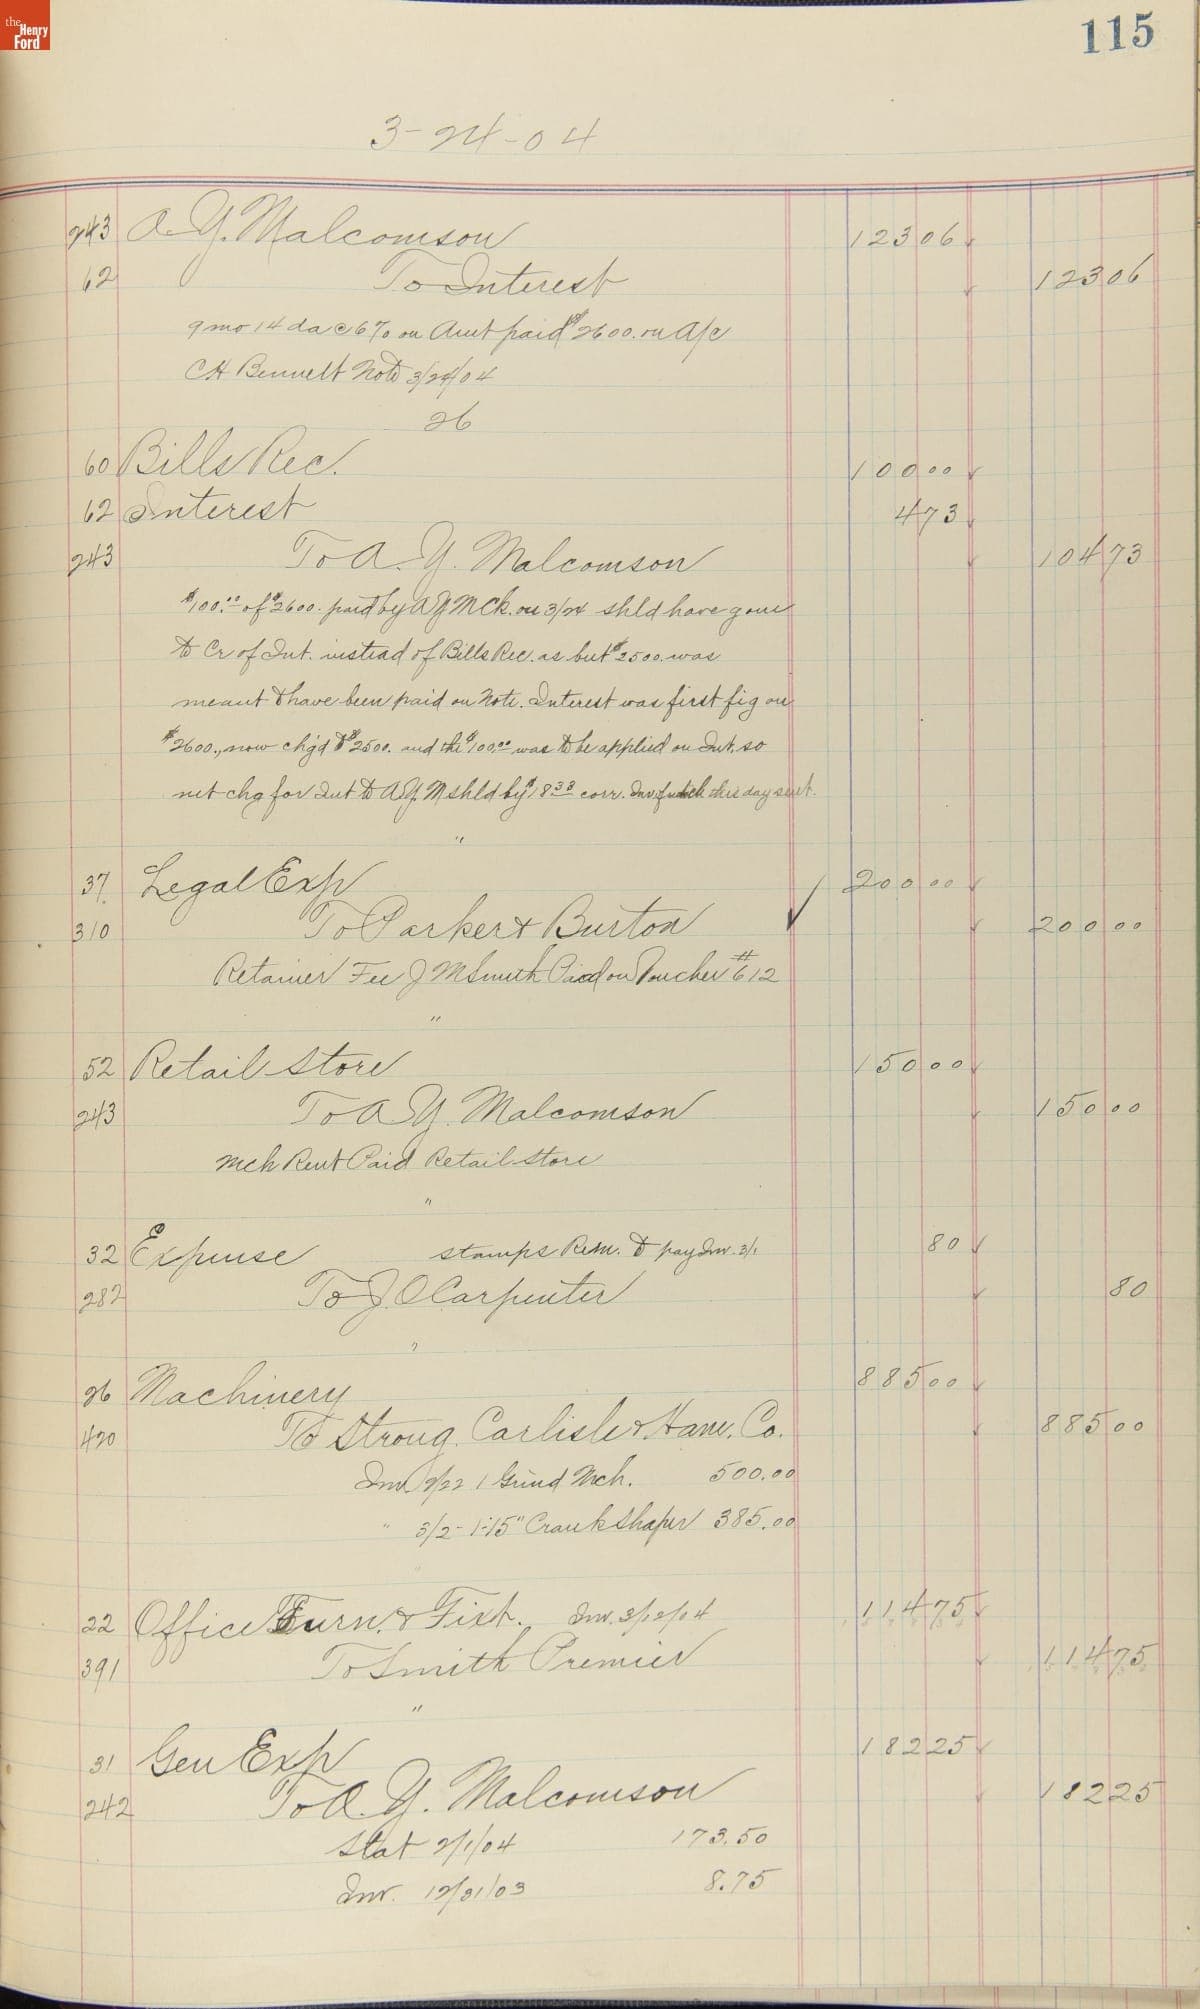 the Henry Ford
115
3-24-04
243 A. Y. Malcomson 123 06
62 To Interest 123 06
9 mo 14 da @ 6% on Amt paid $2600. on A/c
CH Bennett Note 3/24/04
26
60 Bills Rec. 100 00
62 Interest 4 73
243 To A. Y. Malcomson 104 73
$100.00 of $2600. paid by A Y M Ck. on 3/24 shld have gone
to Cr of Int. instead of Bills Rec. as but $2500. was
meant to have been paid on Note. Interest was first fig on
$2600., now chg'd to $2500. and the $100.00 was to be applied on Int. so
net chg for Int to A.Y.M shld by $18 33 corr. Inv. of which this day sent.
"
37 Legal Exp 200 00
310 To Parker & Burton 200 00
Retainer Fee J M Smith Paid on Voucher #612
"
52 Retail Store 150 00
243 To A Y. Malcomson 150 00
Mch Rent Paid Retail Store
"
32 Expense stamps Rem. to pay Inv. 3/1 80
282 To J O Carpenter 80
"
26 Machinery 885 00
420 To Strong, Carlisle & Ham. Co. 885 00
Inv 2/22 1 Grind Mch. 500.00
" 3/2 - 1-15" Crank Shaper 385.00
22 Office Furn. & Fixt. Inv. 3/12/04 114 75
391 To Smith Premier 114 75
"
31 Gen Exp 182 25
242 To A. Y. Malcomson 182 25
Stat 2/1/04 173.50
Inv. 12/31/03 8.75